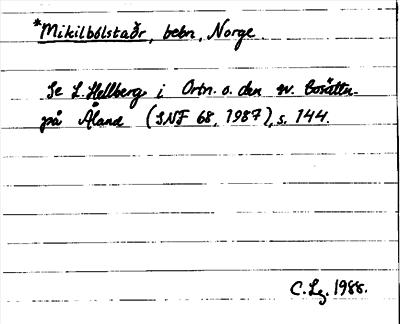 *Mikilbólstaðr, bebn., Norge
Se L. Hellberg i Ortn. o. den sv. bosättn.
på Åland (SNF 68, 1987), s. 144.
C. Lg. 1988.